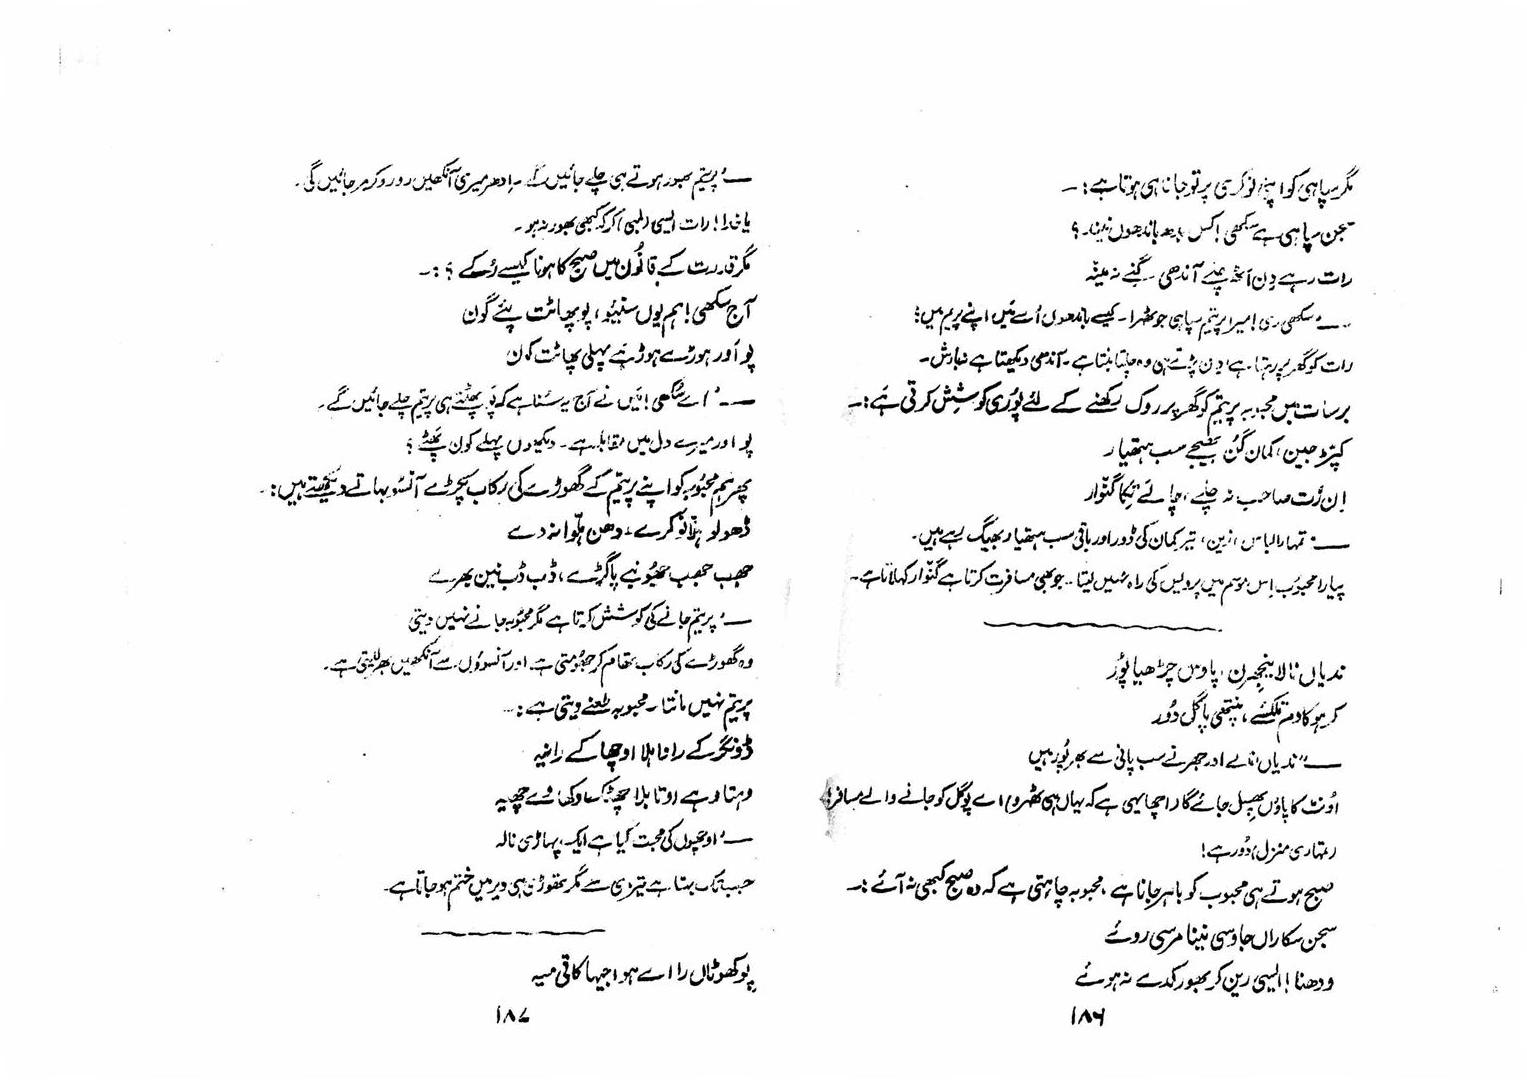 مگر سپاہی کو اپنی نوکری پر تو جانا ہی ہوتا ہے :۔
سجن سپاہی ہے سکھی! کس بدھ باندھوں نینہ۔ ؟
رات رہے دن اٹھ چلے آندھی ۔ گنے نہ مینہ
۔۔ 'سکھی ری! میرا پریتم سپاہی جو ٹھہرا ۔ کیسے باندھوں اُسے میں اپنے پریم میں؛
رات کو گھر پر رہتا ہے، دن پڑتے ہی وہ چلتا بنتا ہے ۔ آندھی دیکھتا ہے نہ بارش۔
برسات میں محبوبہ پریتم کو گھر پر روک رکھنے کے لئے پُوری کوشش کرتی ہے :۔
کپڑ جین، کمان گُن بھیجے سب ہتھیار
اِن رُت صاحب نہ چلے، چالے تِکا گنوار
۔۔ 'تمہارا لباس، زین، تیر کمان کی ڈور اور باقی سب ہتھیار بھیگ رہے ہیں۔
پیارا محبوب اِس موسم میں پردیس کی راہ نہیں لیتا ۔۔ جو بھی مسافرت کرتا ہے گنوار کہلاتا ہے۔
ندیاں نالا پنجھرن، پاوس چڑھیا پوُر
کرہو کادم تلکسے، پنتھی پاگل دُور
۔۔ "ندیاں نالے اور جھرنے سب پانی سے بھرپُور ہیں
اُونٹ کا پاؤں پھسل جائے گا، اچھا یہی ہے کہ یہاں ہی ٹھہرو۔ اے پوگل کو جانے والے مسافر!
(تمہاری منزل) دُور ہے!
صبح ہوتے ہی محبوب کو باہر جانا ہے، محبوبہ چاہتی ہے کہ وہ صبح کبھی نہ آئے :۔
سجن سکاراں جاوسی نینا مرسی روئے
ودھنا! ایسی رین کر بھور کدے نہ ہوئے
۱۸۶
۔۔ 'پریتم بھور ہوتے ہی چلے جائیں گے ۔ اِدھر میری آنکھیں رو رو کر مر جائیں گی۔
یا خدا! رات ایسی (لمبی) کر کہ کبھی بھور نہ ہو۔
مگر قدرت کے قانُون میں صبح کا ہونا کیسے رُکے ؟ :۔
آج سکھی! ہم یوں سنیئو، پو پھاٹت پئے گون
پو اَور ہوڑے ہوڑ ہے پہلی پھاٹت کون
۔۔ 'اے سکھی! میں نے آج یہ سُنا ہے کہ پَو پھٹتے ہی پریتم چلے جائیں گے۔
پو اور میرے دل میں مقابلہ ہے۔ دیکھوں پہلے کون پھٹے؟
پھر ہم محبُوبہ کو اپنے پریتم کے گھوڑے کی رکاب پکڑے آنسو بہاتے دیکھتے ہیں :۔
ڈھولو ہلانو کرے، دھن ہلوا نہ دے
جھب جھب جھومبے پاگڑے، ڈب ڈب نین بھرے
۔۔ 'پریتم جانے کی کوشش کرتا ہے مگر محبُوبہ جانے نہیں دیتی
وہ گھوڑے کی رکاب تھام کر جھُومتی ہے اور آنسوؤں سے آنکھیں بھر لیتی ہے۔
پریتم نہیں مانتا ۔ محبوبہ طعنے دیتی ہے :۔
ڈونگر کے رانا ہلا اوچھا کے رانیہ
وہتا وہے اوتابلا چھٹک دکھاوے چھیہ
۔۔ 'اوچھوں کی محبت کیا ہے ایک پہاڑی نالہ
جب تک بہتا ہے تیزی سے مگر تھوڑی ہی دیر میں ختم ہو جاتا ہے۔
پوکھوٹاں را اے ہوا جیہا کاقی میہ
۱۸۷